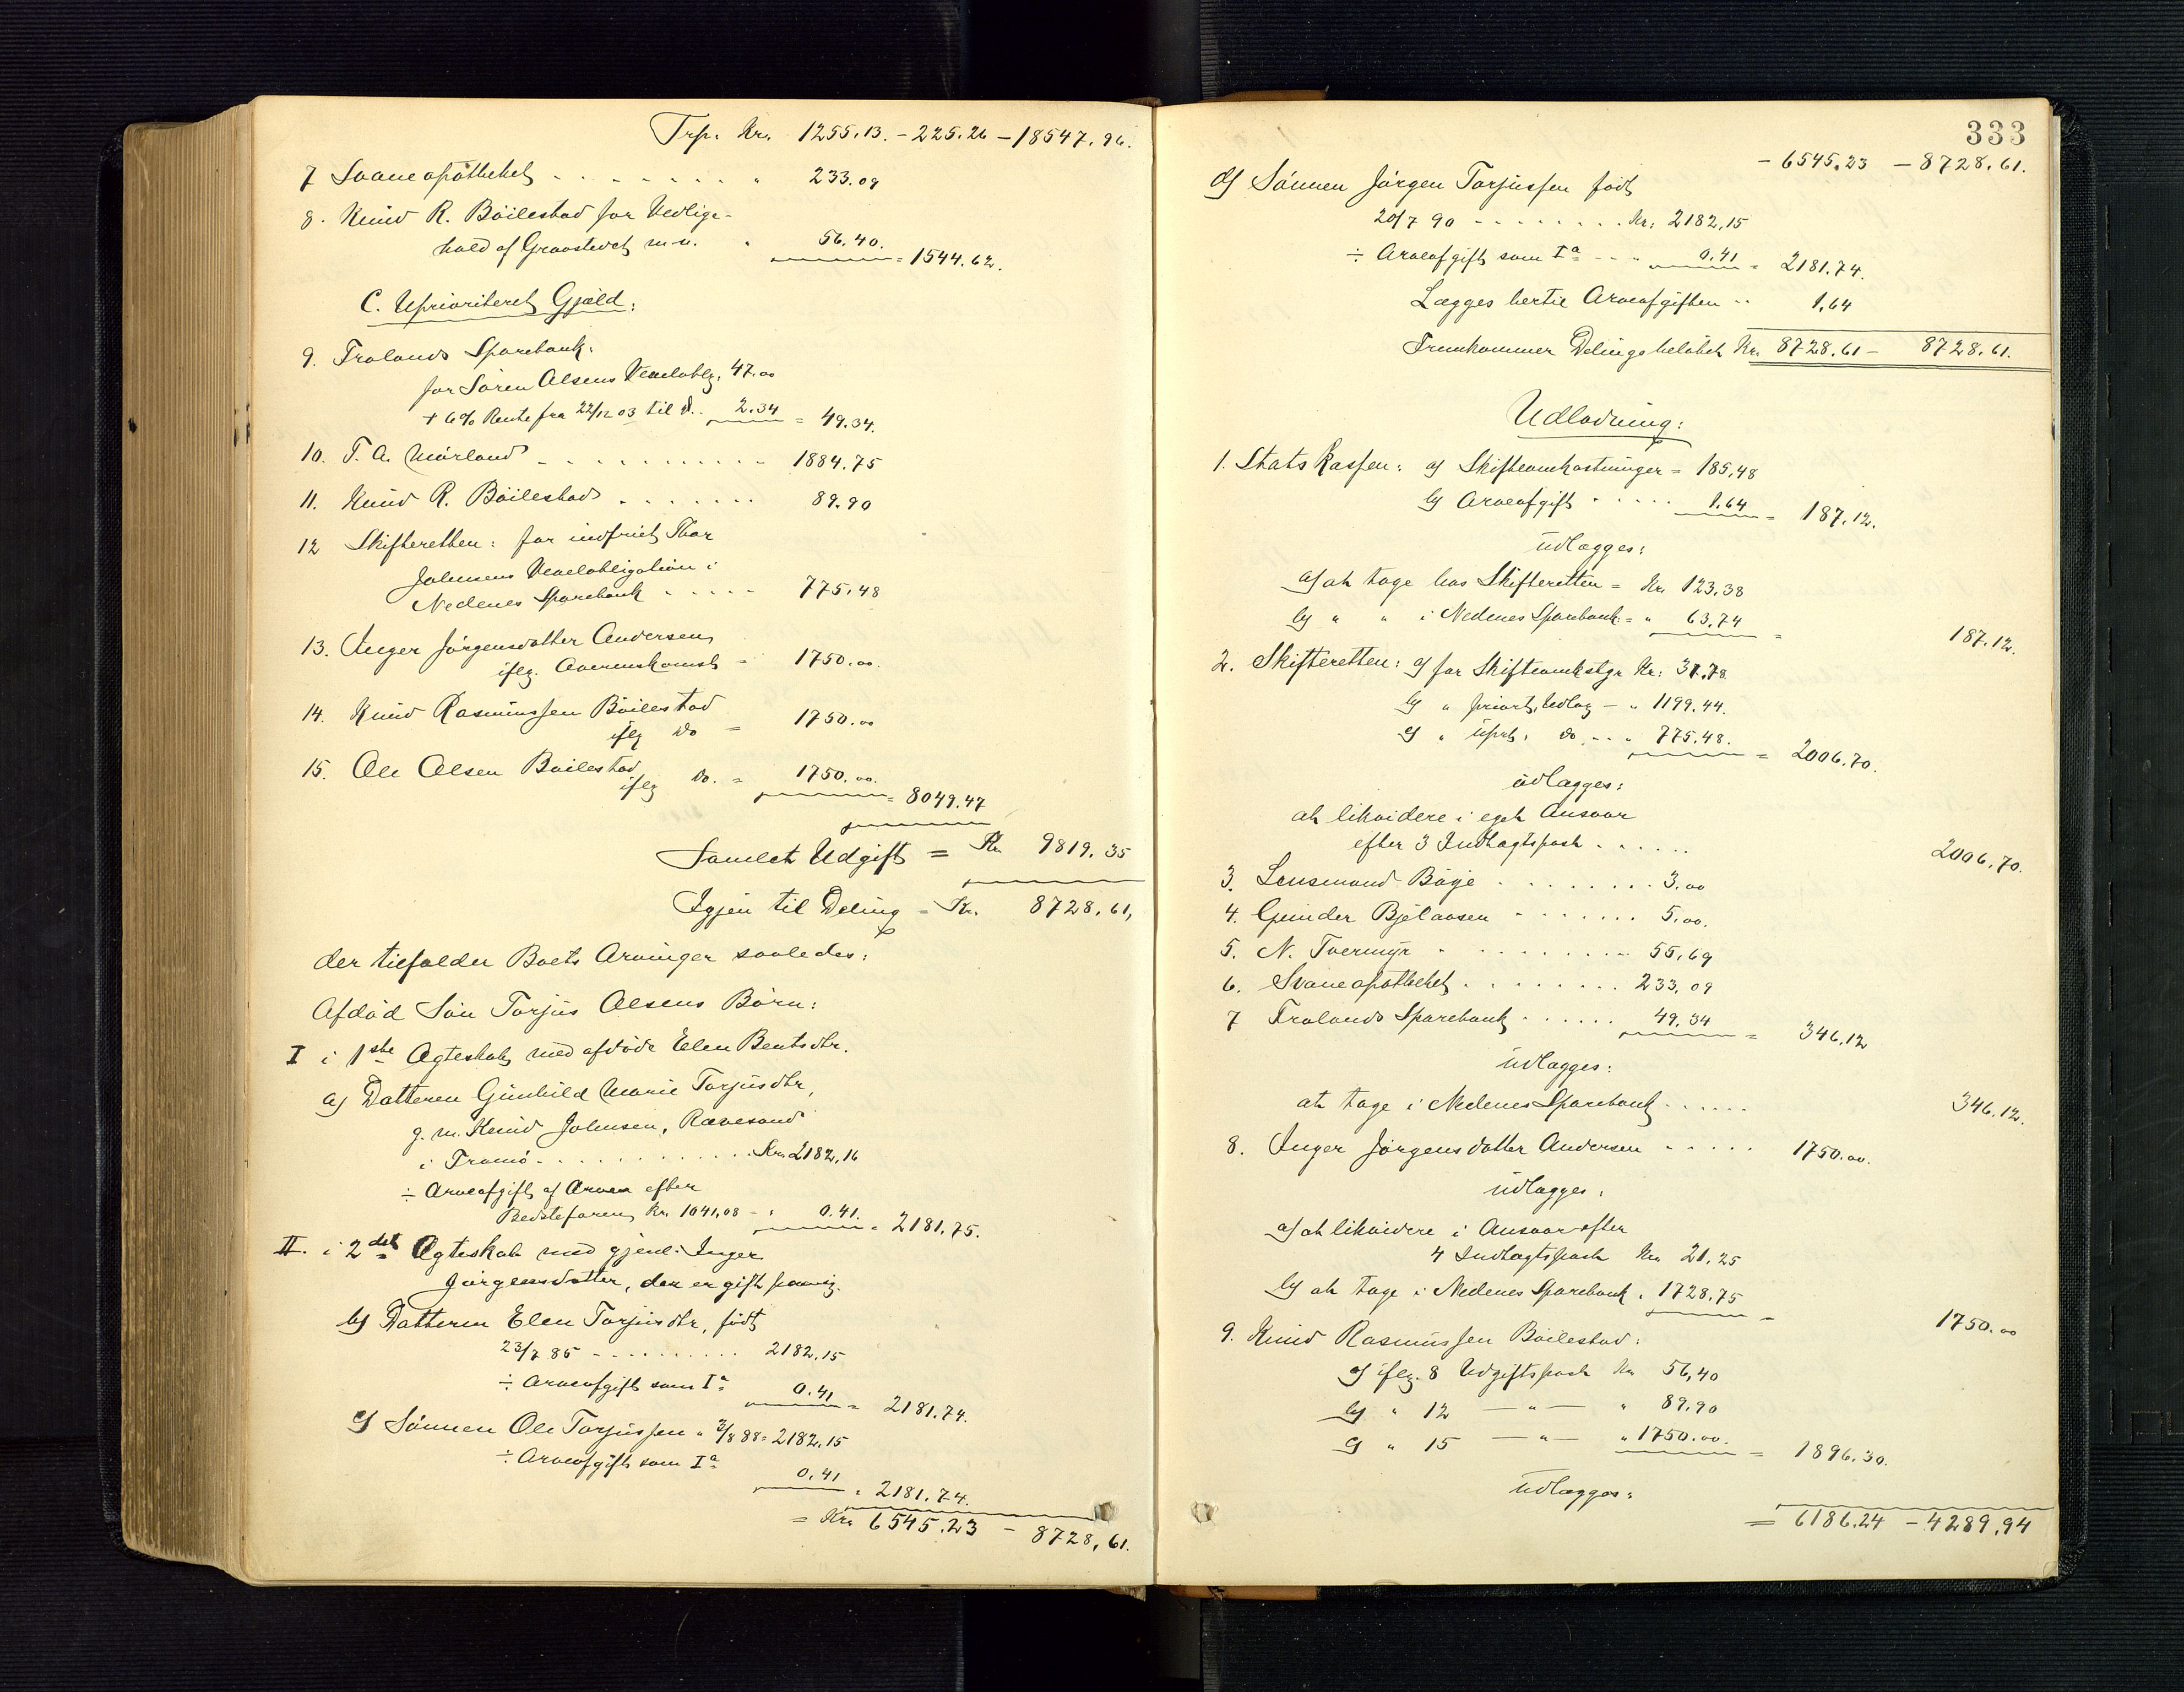 Trp. Kr. 1255.13. - 225.26 - 18547.96.
7 Svaneapotheket . . . . . . . . " 233.09
8. Knud R. Böilestad for Vedlige-
hold af Gravstedet m.v. " 56.40. = 1544.62.
C. Uprioriteret Gjæld:
9. Frolands Sparebank:
for Sören Olsens Vexeloblg. 47.00
+ 6% Rente fra 22/12 03 til d. . 2.34 = 49.34.
10. T. A. Mörland . . . . . . . . . . 1884.75
11. Knud R. Böilestad . . . . . . . 89.90
12 Skifteretten: for indfriet Thor
Johnsens Vexelobligation i
Nedenes Sparebank . . . . . 775.48
13. Inger Jörgensdatter Andersen
iflg. Overenskomst = 1750.00.
14. Knud Rasmussen Böilestad
iflg do = 1750.00
15. Ole Olsen Böilestad
iflg do. = 1750.00. = 8049.47
Samlet Udgift = Kr. 9819.35
Igjen til Deling = Kr. 8728.61,
der tilfalder Boets Arvinger saaledes:
Afdöd Sön Torjus Olsens Börn:
I i 1ste Ægteskab med afdöde Elen Bentsdtr.
a) Datteren Gunhild Marie Torjusdtr,
g. m. Knud Johnsen, Rævesand
i Tromö . . . . . . . . . . . Kr. 2182.16
÷ Arveafgift af Arven efter
Bedstefaren Kr. 1041,08 - " 0.41. = 2181.75.
II. i 2det Ægteskab med gjenl. Inger
Jörgensdatter, der er gift paany.
b) Datteren Elen Torjusdtr, födt
23/7 85 - . . . . . . . . . 2182.15
÷ Arveafgift som Ia 0.41 = 2181.74.
c) Sönnen Ole Torjussen " 3/8 88 = 2182.15
÷ Arveafgift som Ia
0.41 = 2181.74.
= Kr. 6545.23 - 8728.61.
333
- 6545.23 - 8728.61.
d) Sönnen Jörgen Torjussen födt
20/7 90 - . . . . . . . Kr. 2182.15
÷ Arveafgift som Ia - - " 0.41 = 2181.74.
Lægges hertil Arveafgiften . . 1.64
Fremkommer Delingsbelöbet Kr. 8728.61 - 8728.61.
Udlodning:
1. Statskassen: a) Skifteomkostninger = 185.48
b) Arveafgift . . . . . 1.64 = 187.12.
udlægges:
a) at tage hos Skifteretten = Kr. 123.38
b) " " i Nedenes Sparebank = " 63.74 =
187.12.
2. Skifteretten: a) for Skifteomkstgr Kr. 31.78.
b) " priort. Udlæg - " 1199.44.
c) " uprt. do. - - " 775.48. = 2006.70.
udlægges:
at likvidere i eget Ansvar
efter 3 Indtægtspost . . . . . .
2006.70.
3. Lensmand Böje . . . . . . . . 3.00
4. Gunder Bjelaasen . . . . . . . 5.00.
5. N. Tvermyr . . . . . . . . . 55.69
6. Svaneapotheket . . . . . . . . 233.09
7 Frolands Sparebank . . . . . . 49.34 = 346.12
udlægges:
at tage i Nedenes Sparebank . . . . . .
346.12.
8. Inger Jörgensdatter Andersen . . . . . 1750.00.
udlægges:
a) at likvidere i Ansvar efter
4 Indtægtspost Kr. 21.25
b) at tage i Nedenes Sparebank " 1728.75 =
1750.00
9. Knud Rasmussen Böilestad:
a) iflg. 8 Udgiftspost Kr. 56.40
b) " 12 — " — " 89.90
c) " 15 — " — " 1750.00. = 1896.30.
udlægges:
= 6186.24 - 4289.94